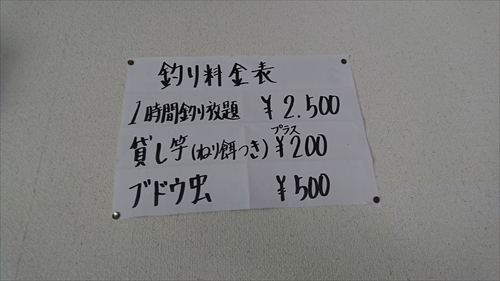 釣り料金表
1時間釣り放題 ¥2.500
プラス
貸し竿(ねり餌つき) ¥200
ブドウ虫 ¥500